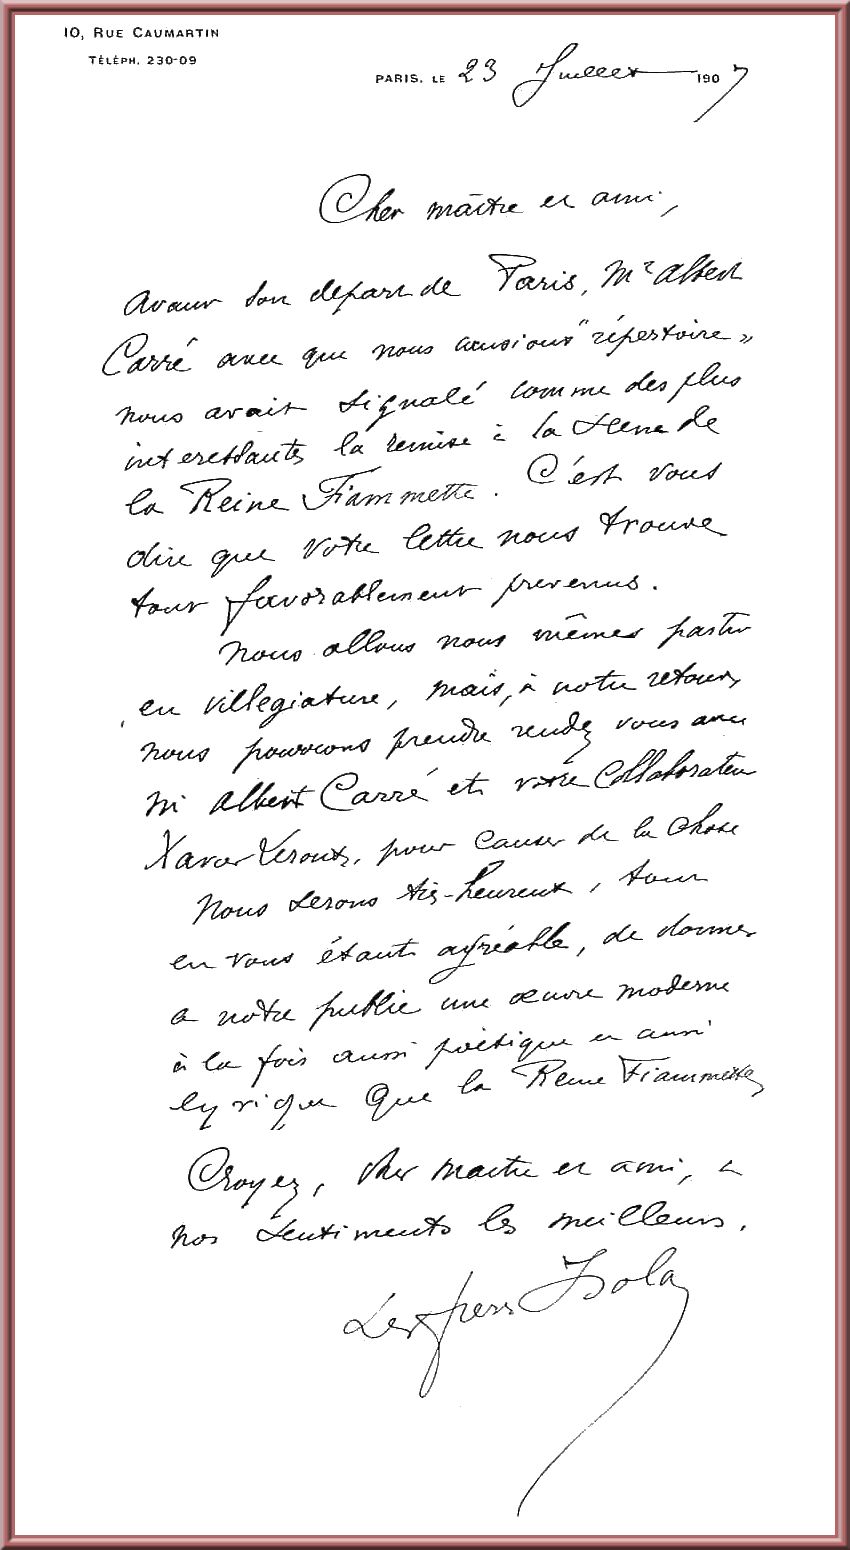 10, RUE CAUMARTIN
TÉLÉPH. 230-09
PARIS, LE 23 Juillet 1907
Cher maître et ami,
Avant son départ de Paris, Mr Albert
Carré avec que nous causions "répertoire"
nous avait signalé comme des plus
interessantes la remise à la scène de
la Reine Fiammette. C'est vous
dire que votre lettre nous trouve
tout favorablement prevenus.
Nous allons nous mêmes partir
en villegiature, mais, à notre retour,
nous pourrons prendre rendez vous avec
M Albert Carré et votre Collaborateur
Xavier Leroux, pour causer de la chose
Nous serons très-heureux, tout
en vous étant agréable, de donner
a notre public une œuvre moderne
à la fois aussi poètique et aussi
lyrique que la Reine Fiammette,
Croyez, cher maitre et ami, a
nos sentiments les meilleurs.
Les freres Isola